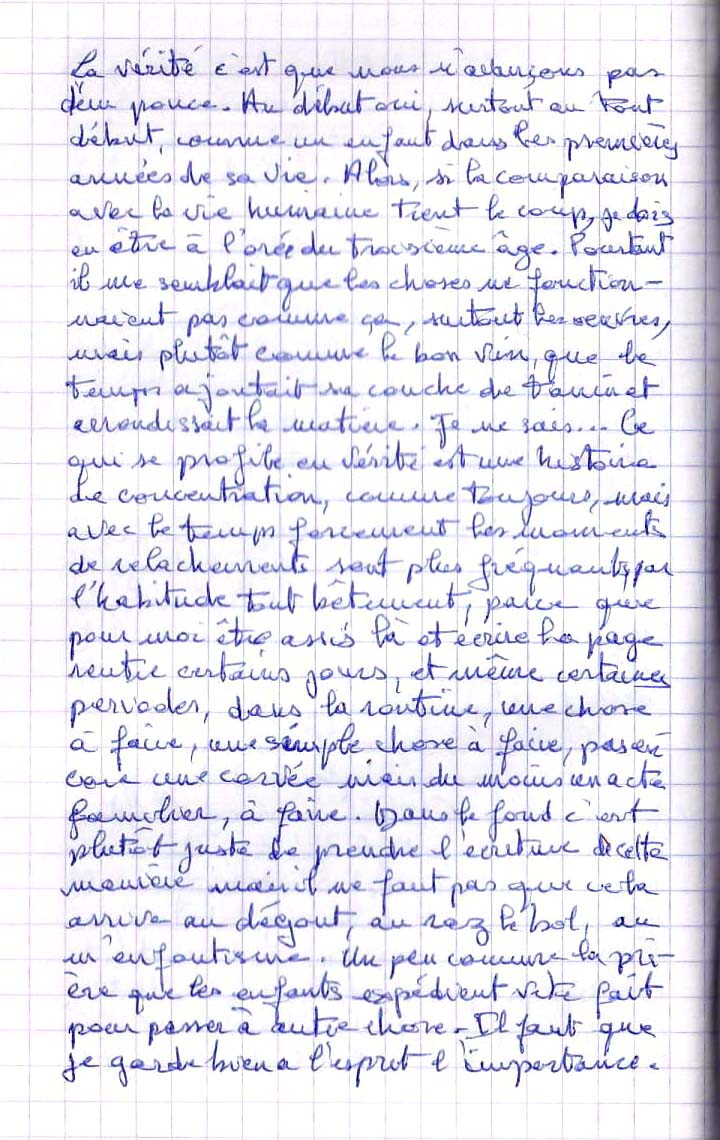 La vérité c'est que nous n'avançons pas
d'un pouce. Au début oui, surtout au tout
début, comme un enfant dans les premières
années de sa vie. Alors, si la comparaison
avec la vie humaine tient le coup, je dois
en être à l'orée du troisième âge. Pourtant
il me semblait que les choses ne fonction-
naient pas comme ça, surtout les oeuvres,
mais plutôt comme le bon vin, que le
temps ajoutait sa couche de tanin et
arrondissait la matière. Je ne sais... Ce
qui se profile en vérité est une histoire
de concentration, comme toujours, mais
avec le temps forcement les moments
de relachements sont plus fréquants, par
l'habitude tout bêtement, parce que
pour moi être assis là et écrire la page
rentre certains jours, et même certaines
periodes, dans la routine, une chose
à faire, une simple chose à faire, pas en
core une corvée mais du moins un acte
familier, à faire. Dans le fond c'est
plutôt juste de prendre l'écriture de cette
manière mais il ne faut pas que cela
arrive au dégout, au raz le bol, au
m'enfoutisme. Un peu comme la pri-
ère que les enfants expédient vite fait
pour passer à autre chose. Il faut que
je garde bien a l'esprit l'importance.